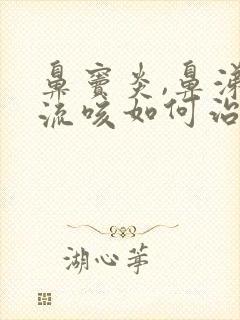 鼻窦炎,鼻涕
流咳如何治
湖心亭